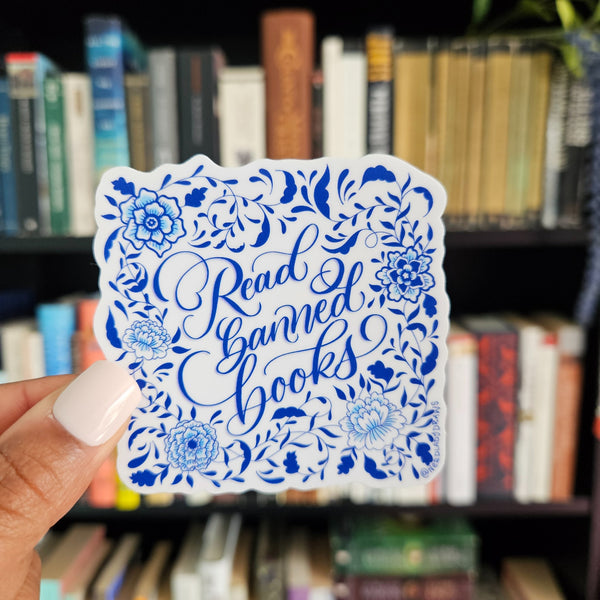 Read
banned
books